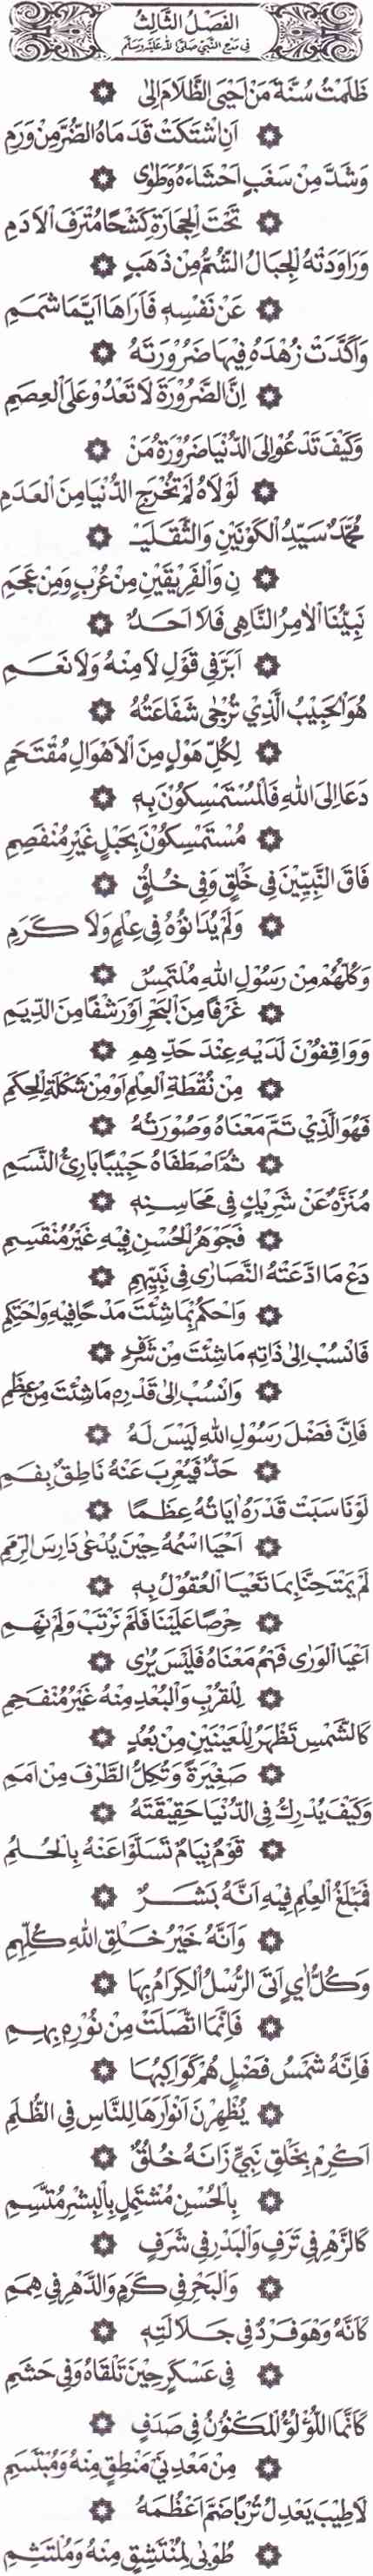 الفَصْلُ الثَّالِثُ
فِي مَدْحِ النَّبِيِّ صَلَّى اللهُ عَلَيْهِ وَسَلَّمَ
ظَلَمْتُ سُنَّةَ مَنْ اَحْيَى الظَّلَامَ اِلٰى
اَنِ اشْتَكَتْ قَدَمَاهُ الضُّرَّ مِنْ وَرَمِ
وَشَدَّ مِنْ سَغَبٍ اَحْشَاءَهُ وَطَوٰى
تَحْتَ الْحِجَارَةِ كَشْحًا مُتْرَفَ الْاَدَمِ
وَرَاوَدَتْهُ الْجِبَالُ الشُّمُّ مِنْ ذَهَبٍ
عَنْ نَفْسِهِ فَاَرَاهَا اَيَّمَا شَمَمِ
وَاَكَّدَتْ زُهْدَهُ فِيهَا ضَرُورَتُهُ
اِنَّ الضَّرُورَةَ لَا تَعْدُو عَلَى الْعِصَمِ
وَكَيْفَ تَدْعُو اِلَى الدُّنْيَا ضَرُورَةُ مَنْ
لَوْلَاهُ لَمْ تُخْرَجِ الدُّنْيَا مِنَ الْعَدَمِ
مُحَمَّدٌ سَيِّدُ الْكَوْنَيْنِ وَالثَّقَلَيْـ
ـنِ وَالْفَرِيقَيْنِ مِنْ عُرْبٍ وَمِنْ عَجَمِ
نَبِيُّنَا الْاٰمِرُ النَّاهِي فَلَا اَحَدٌ
اَبَرَّ فِي قَوْلِ لَا مِنْهُ وَلَا نَعَمِ
هُوَ الْحَبِيْبُ الَّذِيْ تُرْجٰى شَفَاعَتُهُ
لِكُلِّ هَوْلٍ مِنَ الْاَهْوَالِ مُقْتَحَمِ
دَعَا اِلَى اللهِ فَالْمُسْتَمْسِكُوْنَ بِهِ
مُسْتَمْسِكُوْنَ بِحَبْلٍ غَيْرِ مُنْفَصِمِ
فَاقَ النَّبِيِّيْنَ فِي خَلْقٍ وَفِي خُلُقٍ
وَلَمْ يُدَانُوْهُ فِي عِلْمٍ وَلَا كَرَمِ
وَكُلُّهُمْ مِنْ رَسُوْلِ اللهِ مُلْتَمِسٌ
غَرْفًا مِنَ الْبَحْرِ اَوْ رَشْفًا مِنَ الدِّيَمِ
وَوَاقِفُوْنَ لَدَيْهِ عِنْدَ حَدِّهِمِ
مِنْ نُقْطَةِ الْعِلْمِ اَوْ مِنْ شَكْلَةِ الْحِكَمِ
فَهُوَ الَّذِيْ تَمَّ مَعْنَاهُ وَصُوْرَتُهُ
ثُمَّ اصْطَفَاهُ حَبِيْبًا بَارِئُ النَّسَمِ
مُنَزَّهٌ عَنْ شَرِيْكٍ فِي مَحَاسِنِهِ
فَجَوْهَرُ الْحُسْنِ فِيْهِ غَيْرُ مُنْقَسِمِ
دَعْ مَا ادَّعَتْهُ النَّصَارٰى فِي نَبِيِّهِمِ
وَاحْكُمْ بِمَا شِئْتَ مَدْحًا فِيْهِ وَاحْتَكِمِ
فَانْسُبْ اِلٰى ذَاتِهِ مَا شِئْتَ مِنْ شَرَفٍ
وَانْسُبْ اِلٰى قَدْرِهِ مَا شِئْتَ مِنْ عِظَمِ
فَاِنَّ فَضْلَ رَسُوْلِ اللهِ لَيْسَ لَهُ
حَدٌّ فَيُعْرِبَ عَنْهُ نَاطِقٌ بِفَمِ
لَوْ نَاسَبَتْ قَدْرَهُ اٰيَاتُهُ عِظَمًا
اَحْيَا اسْمُهُ حِيْنَ يُدْعٰى دَارِسَ الرِّمَمِ
لَمْ يَمْتَحِنَّا بِمَا تَعْيَا الْعُقُوْلُ بِهِ
حِرْصًا عَلَيْنَا فَلَمْ نَرْتَبْ وَلَمْ نَهِمِ
اَعْيَا الْوَرٰى فَهْمُ مَعْنَاهُ فَلَيْسَ يُرٰى
لِلْقُرْبِ وَالْبُعْدِ مِنْهُ غَيْرُ مُنْفَحِمِ
كَالشَّمْسِ تَظْهَرُ لِلْعَيْنَيْنِ مِنْ بُعُدٍ
صَغِيْرَةً وَتُكِلُّ الطَّرْفَ مِنْ اَمَمِ
وَكَيْفَ يُدْرِكُ فِي الدُّنْيَا حَقِيْقَتَهُ
قَوْمٌ نِيَامٌ تَسَلَّوْا عَنْهُ بِالْحُلُمِ
فَمَبْلَغُ الْعِلْمِ فِيْهِ اَنَّهُ بَشَرٌ
وَاَنَّهُ خَيْرُ خَلْقِ اللهِ كُلِّهِمِ
وَكُلُّ اٰيٍ اَتَى الرُّسْلُ الْكِرَامُ بِهَا
فَاِنَّمَا اتَّصَلَتْ مِنْ نُوْرِهِ بِهِمِ
فَاِنَّهُ شَمْسُ فَضْلٍ هُمْ كَوَاكِبُهَا
يُظْهِرْنَ اَنْوَارَهَا لِلنَّاسِ فِي الظُّلَمِ
اَكْرِمْ بِخَلْقِ نَبِيٍّ زَانَهُ خُلُقٌ
بِالْحُسْنِ مُشْتَمِلٍ بِالْبِشْرِ مُتَّسِمِ
كَالزَّهْرِ فِي تَرَفٍ وَالْبَدْرِ فِي شَرَفٍ
وَالْبَحْرِ فِي كَرَمٍ وَالدَّهْرِ فِي هِمَمِ
كَاَنَّهُ وَهُوَ فَرْدٌ فِي جَلَالَتِهِ
فِي عَسْكَرٍ حِيْنَ تَلْقَاهُ وَفِي حَشَمِ
كَاَنَّمَا اللُّؤْلُؤُ الْمَكْنُوْنُ فِي صَدَفٍ
مِنْ مَعْدِنَيْ مَنْطِقٍ مِنْهُ وَمُبْتَسَمِ
لَا طِيْبَ يَعْدِلُ تُرْبًا ضَمَّ اَعْظُمَهُ
طُوْبٰى لِمُنْتَشِقٍ مِنْهُ وَمُلْتَثِمِ